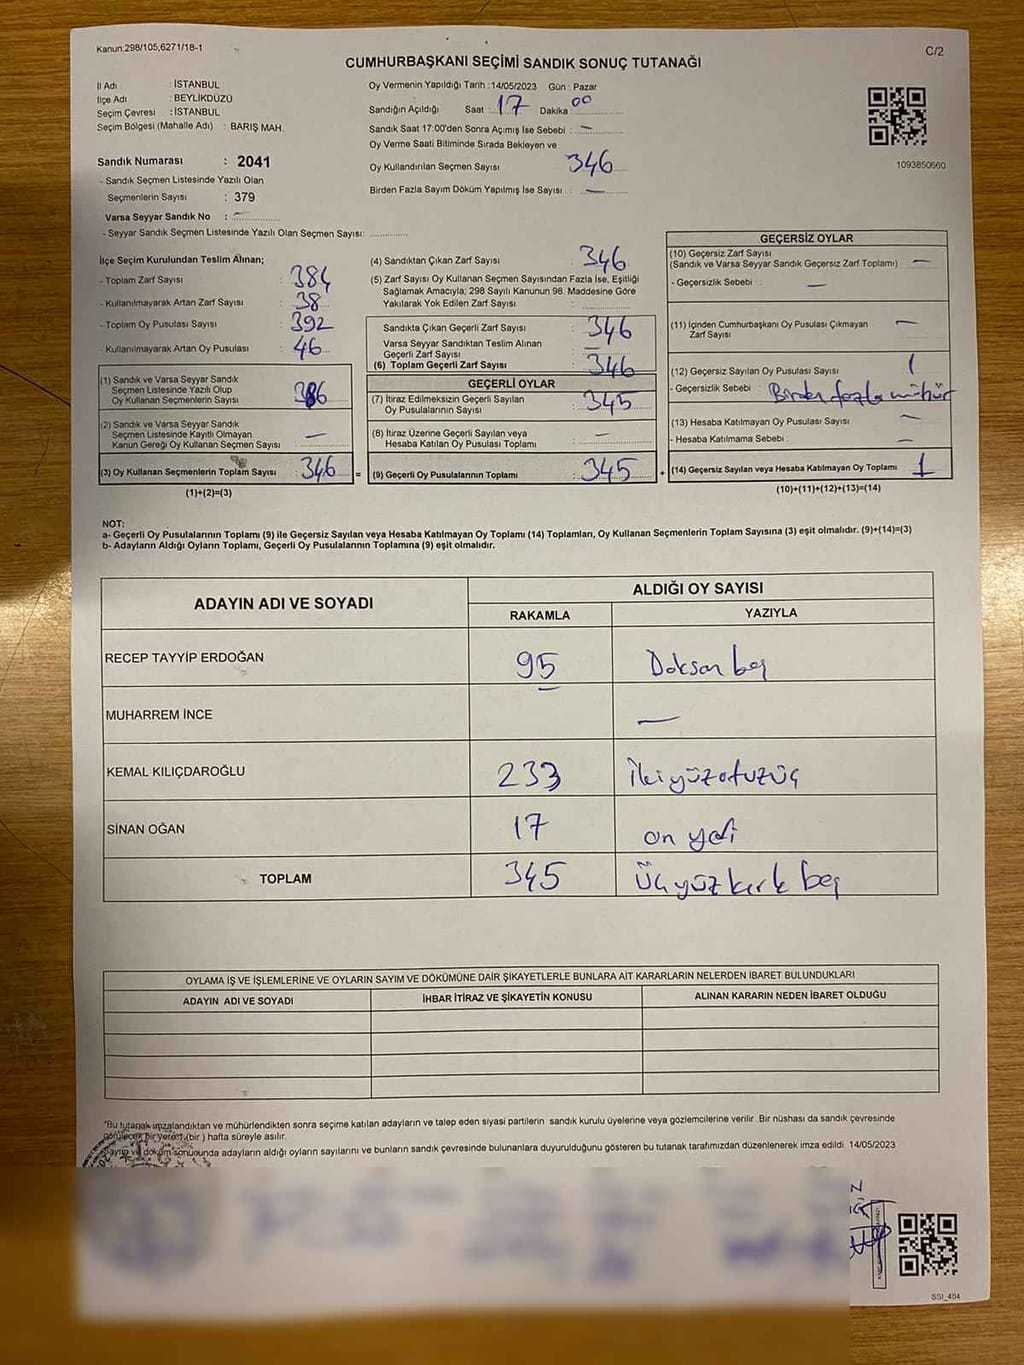 Kanun.298/105,6271/18-1
C/2
CUMHURBAŞKANI SEÇİMİ SANDIK SONUÇ TUTANAĞI
İl Adı : İSTANBUL
İlçe Adı : BEYLİKDÜZÜ
Seçim Çevresi : İSTANBUL
Seçim Bölgesi (Mahalle Adı) : BARIŞ MAH.
Sandık Numarası : 2041
- Sandık Seçmen Listesinde Yazılı Olan
Seçmenlerin Sayısı : 379
Varsa Seyyar Sandık No : —
- Seyyar Sandık Seçmen Listesinde Yazılı Olan Seçmen Sayısı:
Oy Vermenin Yapıldığı Tarih : 14/05/2023 Gün : Pazar
Sandığın Açıldığı Saat : 17 Dakika : 00
Sandık Saat 17:00'den Sonra Açımış İse Sebebi : —
Oy Verme Saati Bitiminde Sırada Bekleyen ve
Oy Kullandırılan Seçmen Sayısı 346
Birden Fazla Sayım Döküm Yapılmış İse Sayısı : —
1093850660
İlçe Seçim Kurulundan Teslim Alınan;
- Toplam Zarf Sayısı : 384
- Kullanılmayarak Artan Zarf Sayısı : 38
- Toplam Oy Pusulası Sayısı : 392
- Kullanılmayarak Artan Oy Pusulası : 46
(1) Sandık ve Varsa Seyyar Sandık
Seçmen Listesinde Yazılı Olup
Oy Kullanan Seçmenlerin Sayısı :
(2) Sandık ve Varsa Seyyar Sandık
Seçmen Listesinde Kayıtlı Olmayan
Kanun Gereği Oy Kullanan Seçmen Sayısı : —
(3) Oy Kullanan Seçmenlerin Toplam Sayısı : 346
(1)+(2)=(3)
=
(4) Sandıktan Çıkan Zarf Sayısı : 346
(5) Zarf Sayısı Oy Kullanan Seçmen Sayısından Fazla İse, Eşitliği
Sağlamak Amacıyla; 298 Sayılı Kanunun 98. Maddesine Göre
Yakılarak Yok Edilen Zarf Sayısı :
Sandıkta Çıkan Geçerli Zarf Sayısı : 346
Varsa Seyyar Sandıktan Teslim Alınan
Geçerli Zarf Sayısı : —
(6) Toplam Geçerli Zarf Sayısı : 346
GEÇERLİ OYLAR
(7) İtiraz Edilmeksizin Geçerli Sayılan
Oy Pusulalarının Sayısı : 345
(8) İtiraz Üzerine Geçerli Sayılan veya
Hesaba Katılan Oy Pusulası Toplamı : —
(9) Geçerli Oy Pusulalarının Toplamı : 345
+
GEÇERSİZ OYLAR
(10) Geçersiz Zarf Sayısı
(Sandık ve Varsa Seyyar Sandık Geçersiz Zarf Toplamı) : —
- Geçersizlik Sebebi : —
(11) İçinden Cumhurbaşkanı Oy Pusulası Çıkmayan
Zarf Sayısı : —
(12) Geçersiz Sayılan Oy Pusulası Sayısı : 1
- Geçersizlik Sebebi : Birden fazla mühür
(13) Hesaba Katılmayan Oy Pusulası Sayısı : —
- Hesaba Katılmama Sebebi : —
(14) Geçersiz Sayılan veya Hesaba Katılmayan Oy Toplamı : 1
(10)+(11)+(12)+(13)=(14)
NOT:
a- Geçerli Oy Pusulalarının Toplamı (9) ile Geçersiz Sayılan veya Hesaba Katılmayan Oy Toplamı (14) Toplamları, Oy Kullanan Seçmenlerin Toplam Sayısına (3) eşit olmalıdır. (9)+(14)=(3)
b- Adayların Aldığı Oyların Toplamı, Geçerli Oy Pusulalarının Toplamına (9) eşit olmalıdır.
ADAYIN ADI VE SOYADI
ALDIĞI OY SAYISI
RAKAMLA YAZIYLA
RECEP TAYYİP ERDOĞAN 95 Doksan beş
MUHARREM İNCE —
KEMAL KILIÇDAROĞLU 233 İkiyüzotuzüç
SİNAN OĞAN 17 on yedi
TOPLAM 345 Üçyüzkırk beş
OYLAMA İŞ VE İŞLEMLERİNE VE OYLARIN SAYIM VE DÖKÜMÜNE DAİR ŞİKAYETLERLE BUNLARA AİT KARARLARIN NELERDEN İBARET BULUNDUKLARI
ADAYIN ADI VE SOYADI İHBAR İTİRAZ VE ŞİKAYETİN KONUSU ALINAN KARARIN NEDEN İBARET OLDUĞU
*Bu tutanak imzalandıktan ve mühürlendikten sonra seçime katılan adayların ve talep eden siyasi partilerin sandık kurulu üyelerine veya gözlemcilerine verilir. Bir nüshası da sandık çevresinde
görülecek bir yere 1 (bir ) hafta süreyle asılır.
Sayım ve döküm sonuounda adayların aldığı oyların sayılarını ve bunların sandık çevresinde bulunanlara duyurulduğunu gösteren bu tutanak tarafımızdan düzenlenerek imza edildi. 14/05/2023
SSI_404